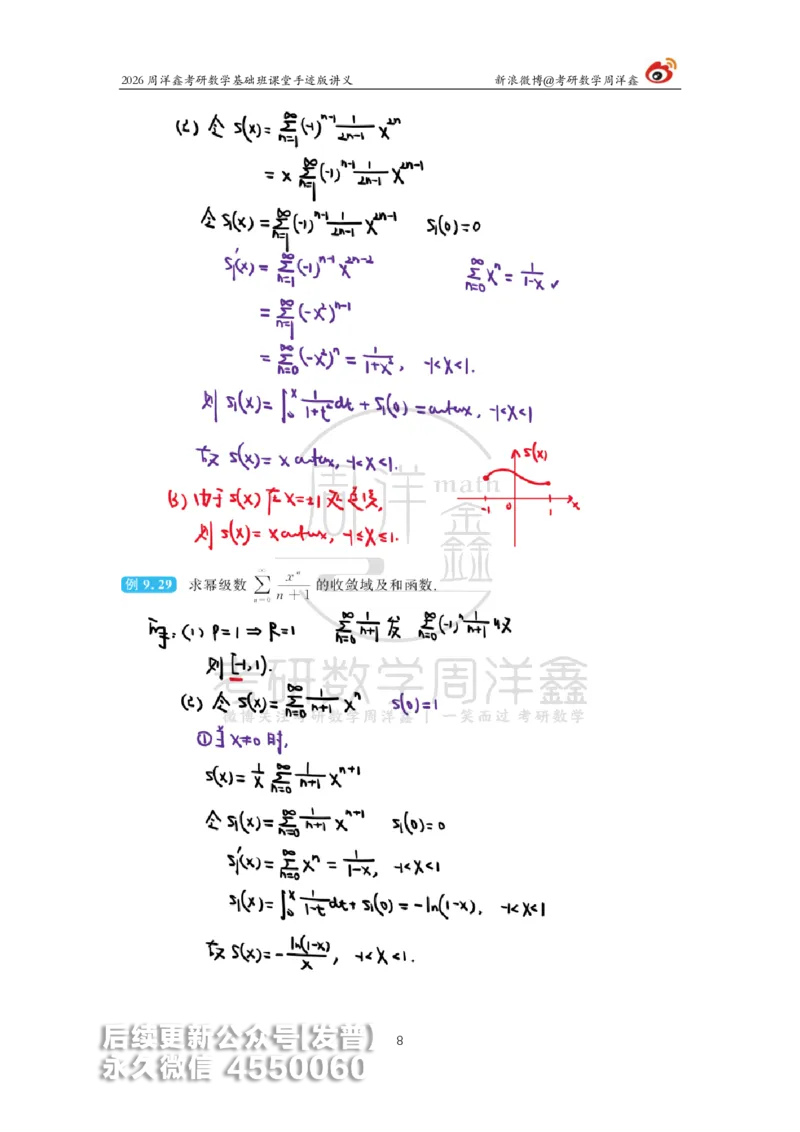 2026 周洋鑫考研数学基础班课堂手迹版讲义 新浪微博@考研数学周洋鑫
(2) 令 S(x) = ∑_{n=1}^{∞} (-1)^{n-1} \frac{1}{2n-1} x^{2n}
= x ∑_{n=1}^{∞} (-1)^{n-1} \frac{1}{2n-1} x^{2n-1}
令 S₁(x) = ∑_{n=1}^{∞} (-1)^{n-1} \frac{1}{2n-1} x^{2n-1} S₁(0) = 0
S₁'(x) = ∑_{n=1}^{∞} (-1)^{n-1} x^{2n-2} ∑_{n=0}^{∞} x^n = \frac{1}{1-x} ✓
= ∑_{n=1}^{∞} (-x²)^{n-1}
= ∑_{n=0}^{∞} (-x²)^n = \frac{1}{1+x²}, -1<x<1.
则 S₁(x) = ∫_0^x \frac{1}{1+t²} dt + S₁(0) = arctanx, -1<x<1
故 S(x) = x arctanx, -1<x<1.
S(x)
-1 0 1 x
(3) 由于 S(x) 在 x=±1 处连续,
则 S(x) = x arctanx, -1≤x≤1.
周洋鑫 math
例 9.29 求幂级数 ∑_{n=0}^{∞} \frac{x^n}{n+1} 的收敛域及和函数.
解: (1) ρ=1 ⇒ R=1 ∑_{n=0}^{∞} \frac{1}{n+1} 发 ∑_{n=0}^{∞} (-1)^n \frac{1}{n+1} 收
则 [-1,1).
考研数学周洋鑫
(2) 令 S(x) = ∑_{n=0}^{∞} \frac{1}{n+1} x^n S(0)=1
微博关注考研数学周洋鑫 | 一笑而过 考研数学
① 当 x≠0 时,
S(x) = \frac{1}{x} ∑_{n=0}^{∞} \frac{1}{n+1} x^{n+1}
令 S₁(x) = ∑_{n=0}^{∞} \frac{1}{n+1} x^{n+1} S₁(0)=0
S₁'(x) = ∑_{n=0}^{∞} x^n = \frac{1}{1-x}, -1<x<1
S₁(x) = ∫_0^x \frac{1}{1-t} dt + S₁(0) = -ln(1-x), -1<x<1
故 S(x) = -\frac{ln(1-x)}{x}, -1<x<1.
后续更新公众号[发普]
永久微信 4550060
8